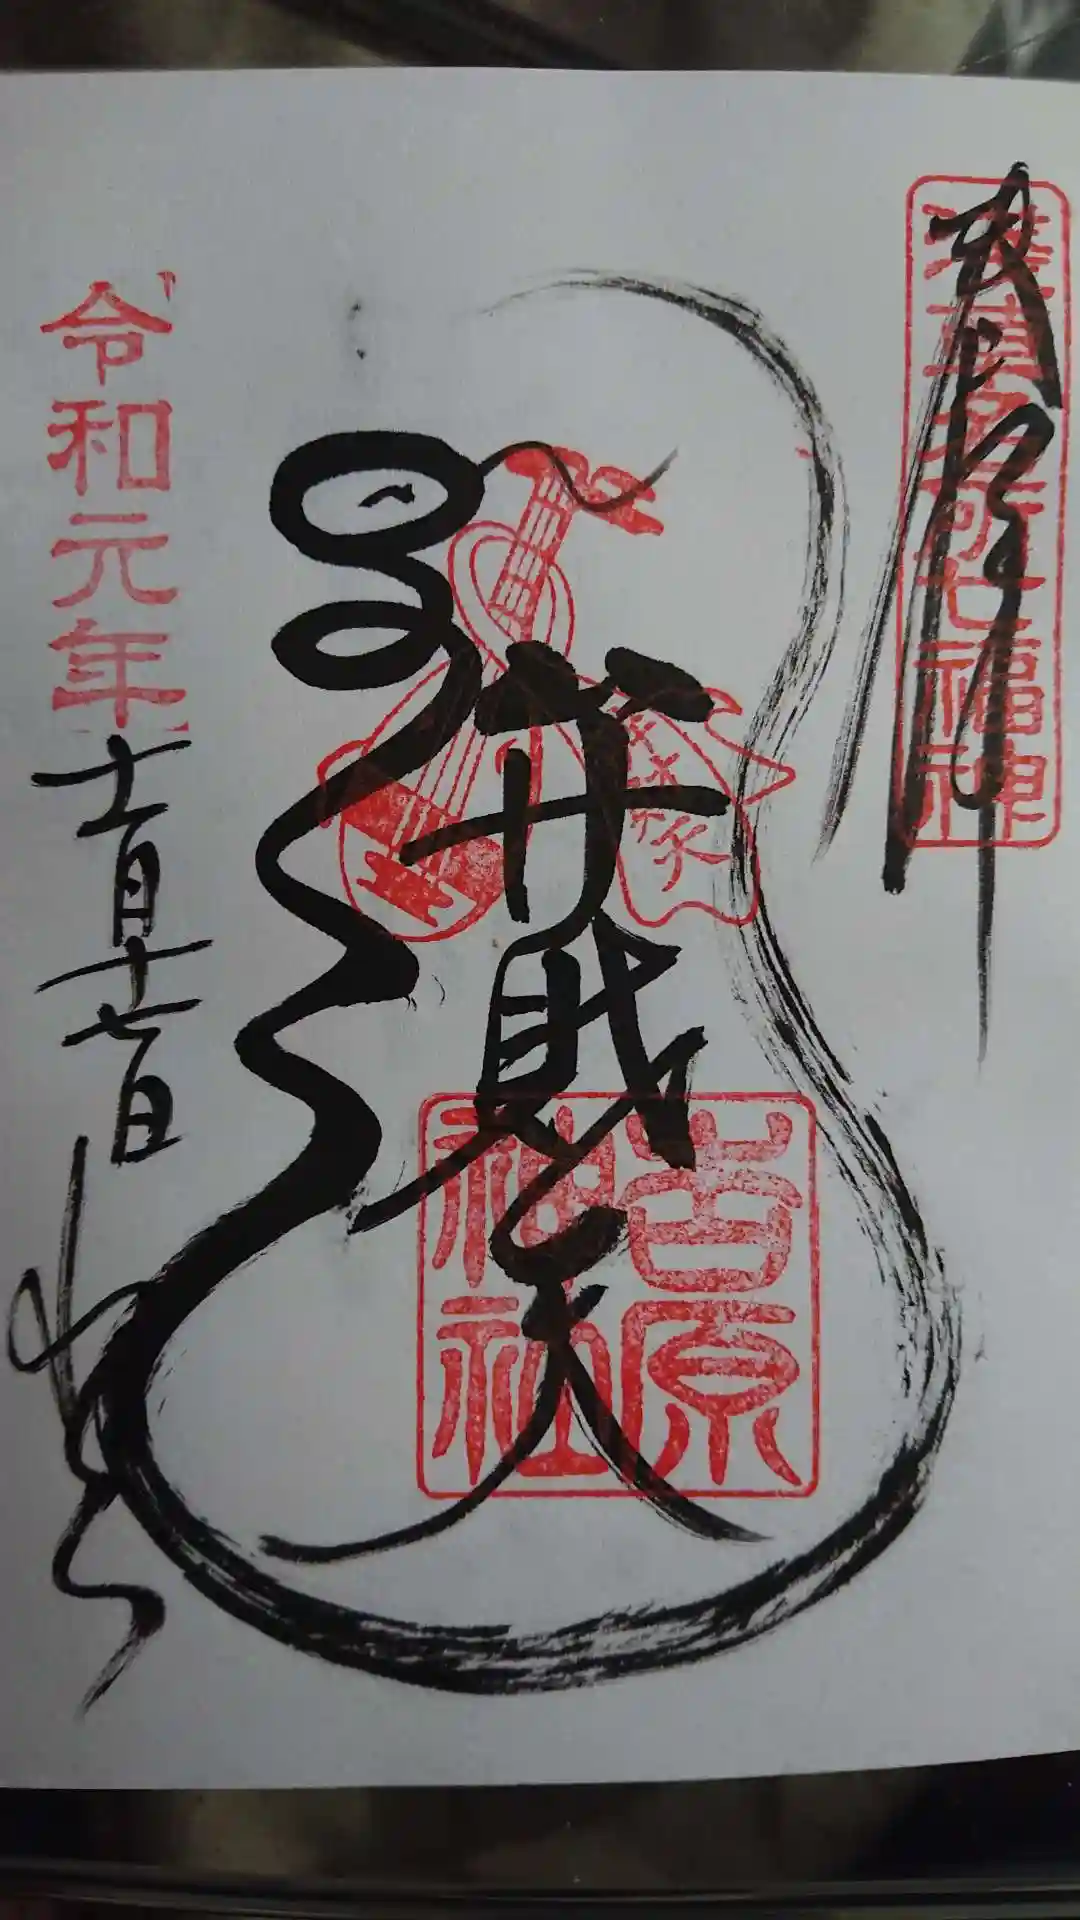 奉拝
浅草名所七福神
弁財天
弁財天
吉原
神社
令和元年
七月十七日